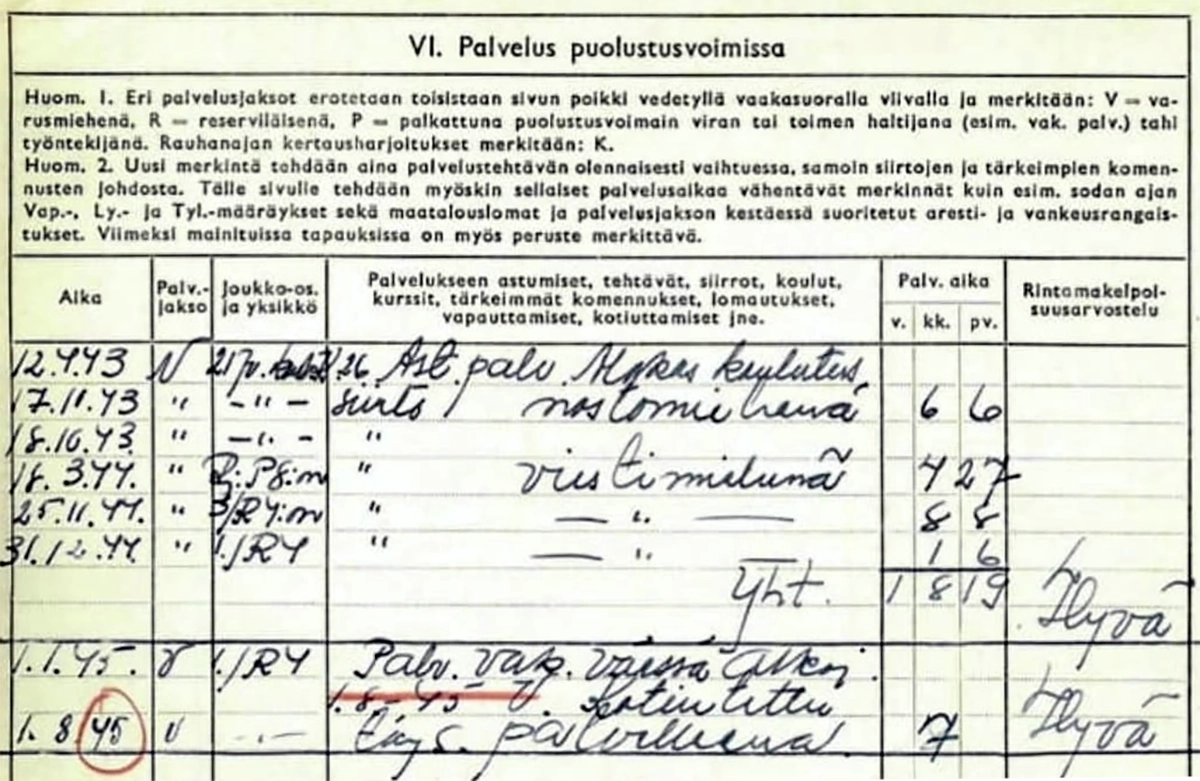 VI. Palvelus puolustusvoimissa
Huom. 1. Eri palvelusjaksot erotetaan toisistaan sivun poikki vedetyllä vaakasuoralla viivalla ja merkitään: V = va-
rusmiehenä, R = reserviläisenä, P = palkattuna puolustusvoimain viran tai toimen haltijana (esim. vak. palv.) tahi
työntekijänä. Rauhanajan kertausharjoitukset merkitään: K.
Huom. 2. Uusi merkintä tehdään aina palvelustehtävän olennaisesti vaihtuessa, samoin siirtojen ja tärkeimpien komen-
nusten johdosta. Tälle sivulle tehdään myöskin sellaiset palvelusaikaa vähentävät merkinnät kuin esim. sodan ajan
Vap.-, Ly.- ja Tyl.-määräykset sekä maatalouslomat ja palvelusjakson kestäessä suoritetut aresti- ja vankeusrangais-
tukset. Viimeksi mainituissa tapauksissa on myös peruste merkittävä.
Aika
Palv.-
jakso
Joukko-os.
ja yksikkö
Palvelukseen astumiset, tehtävät, siirrot, koulut,
kurssit, tärkeimmät komennukset, lomautukset,
vapauttamiset, kotiuttamiset jne.
Palv. aika
v. kk. pv.
Rintamakelpoi-
suusarvostelu
12.4.43 V Ast. palv.
17.11.43 " -"- siirto nostomiehenä 6 6
18.10.43 " -"- "
18.3.44. " " viestimiehenä 4 27
25.11.44. " " — " — 8 8
31.12.44. " 1./R4 " — " 1 6
Yht. 1 8 19 Hyvä
1.1.45. V 1./R4 Palv. vak. väessä alkoi
1.8-45 V. Kotiutettu
1.8 45 V -"- täys. palvelleena. 7 Hyvä